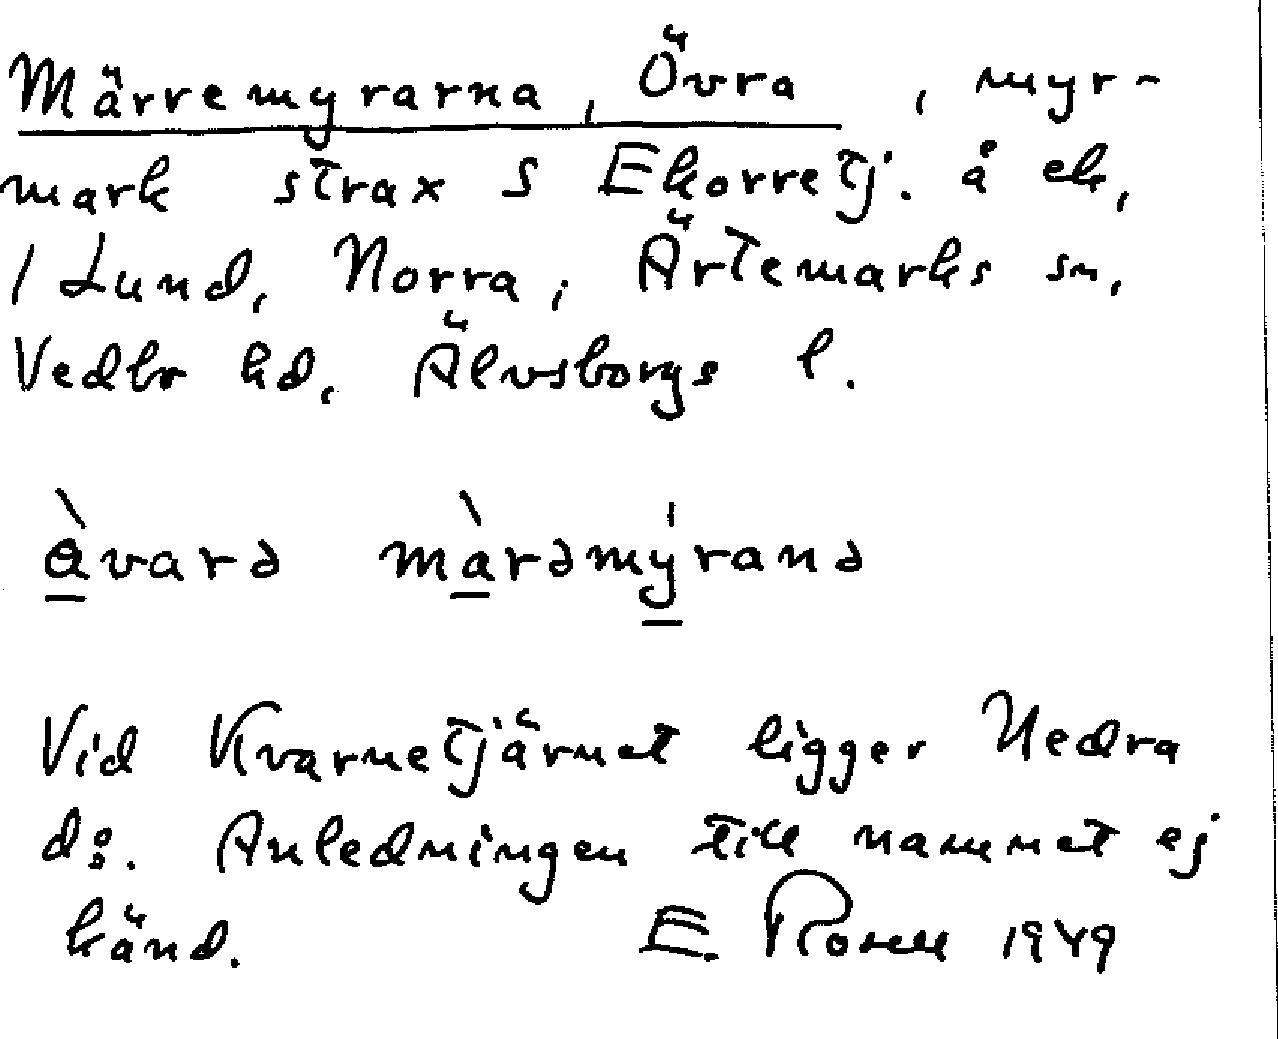 Märremyrarna, Övra, myr-
mark strax S Ekorretj. å ek,
1 Lund, Norra, Ärtemarks sn,
Vedbo hd, Älvsborgs l.
àvarə màrəmýranə
Vid Kvarnetjärnet ligger Nedra
d:o. Anledningen till namnet ej
känd. E. Rosell 1949